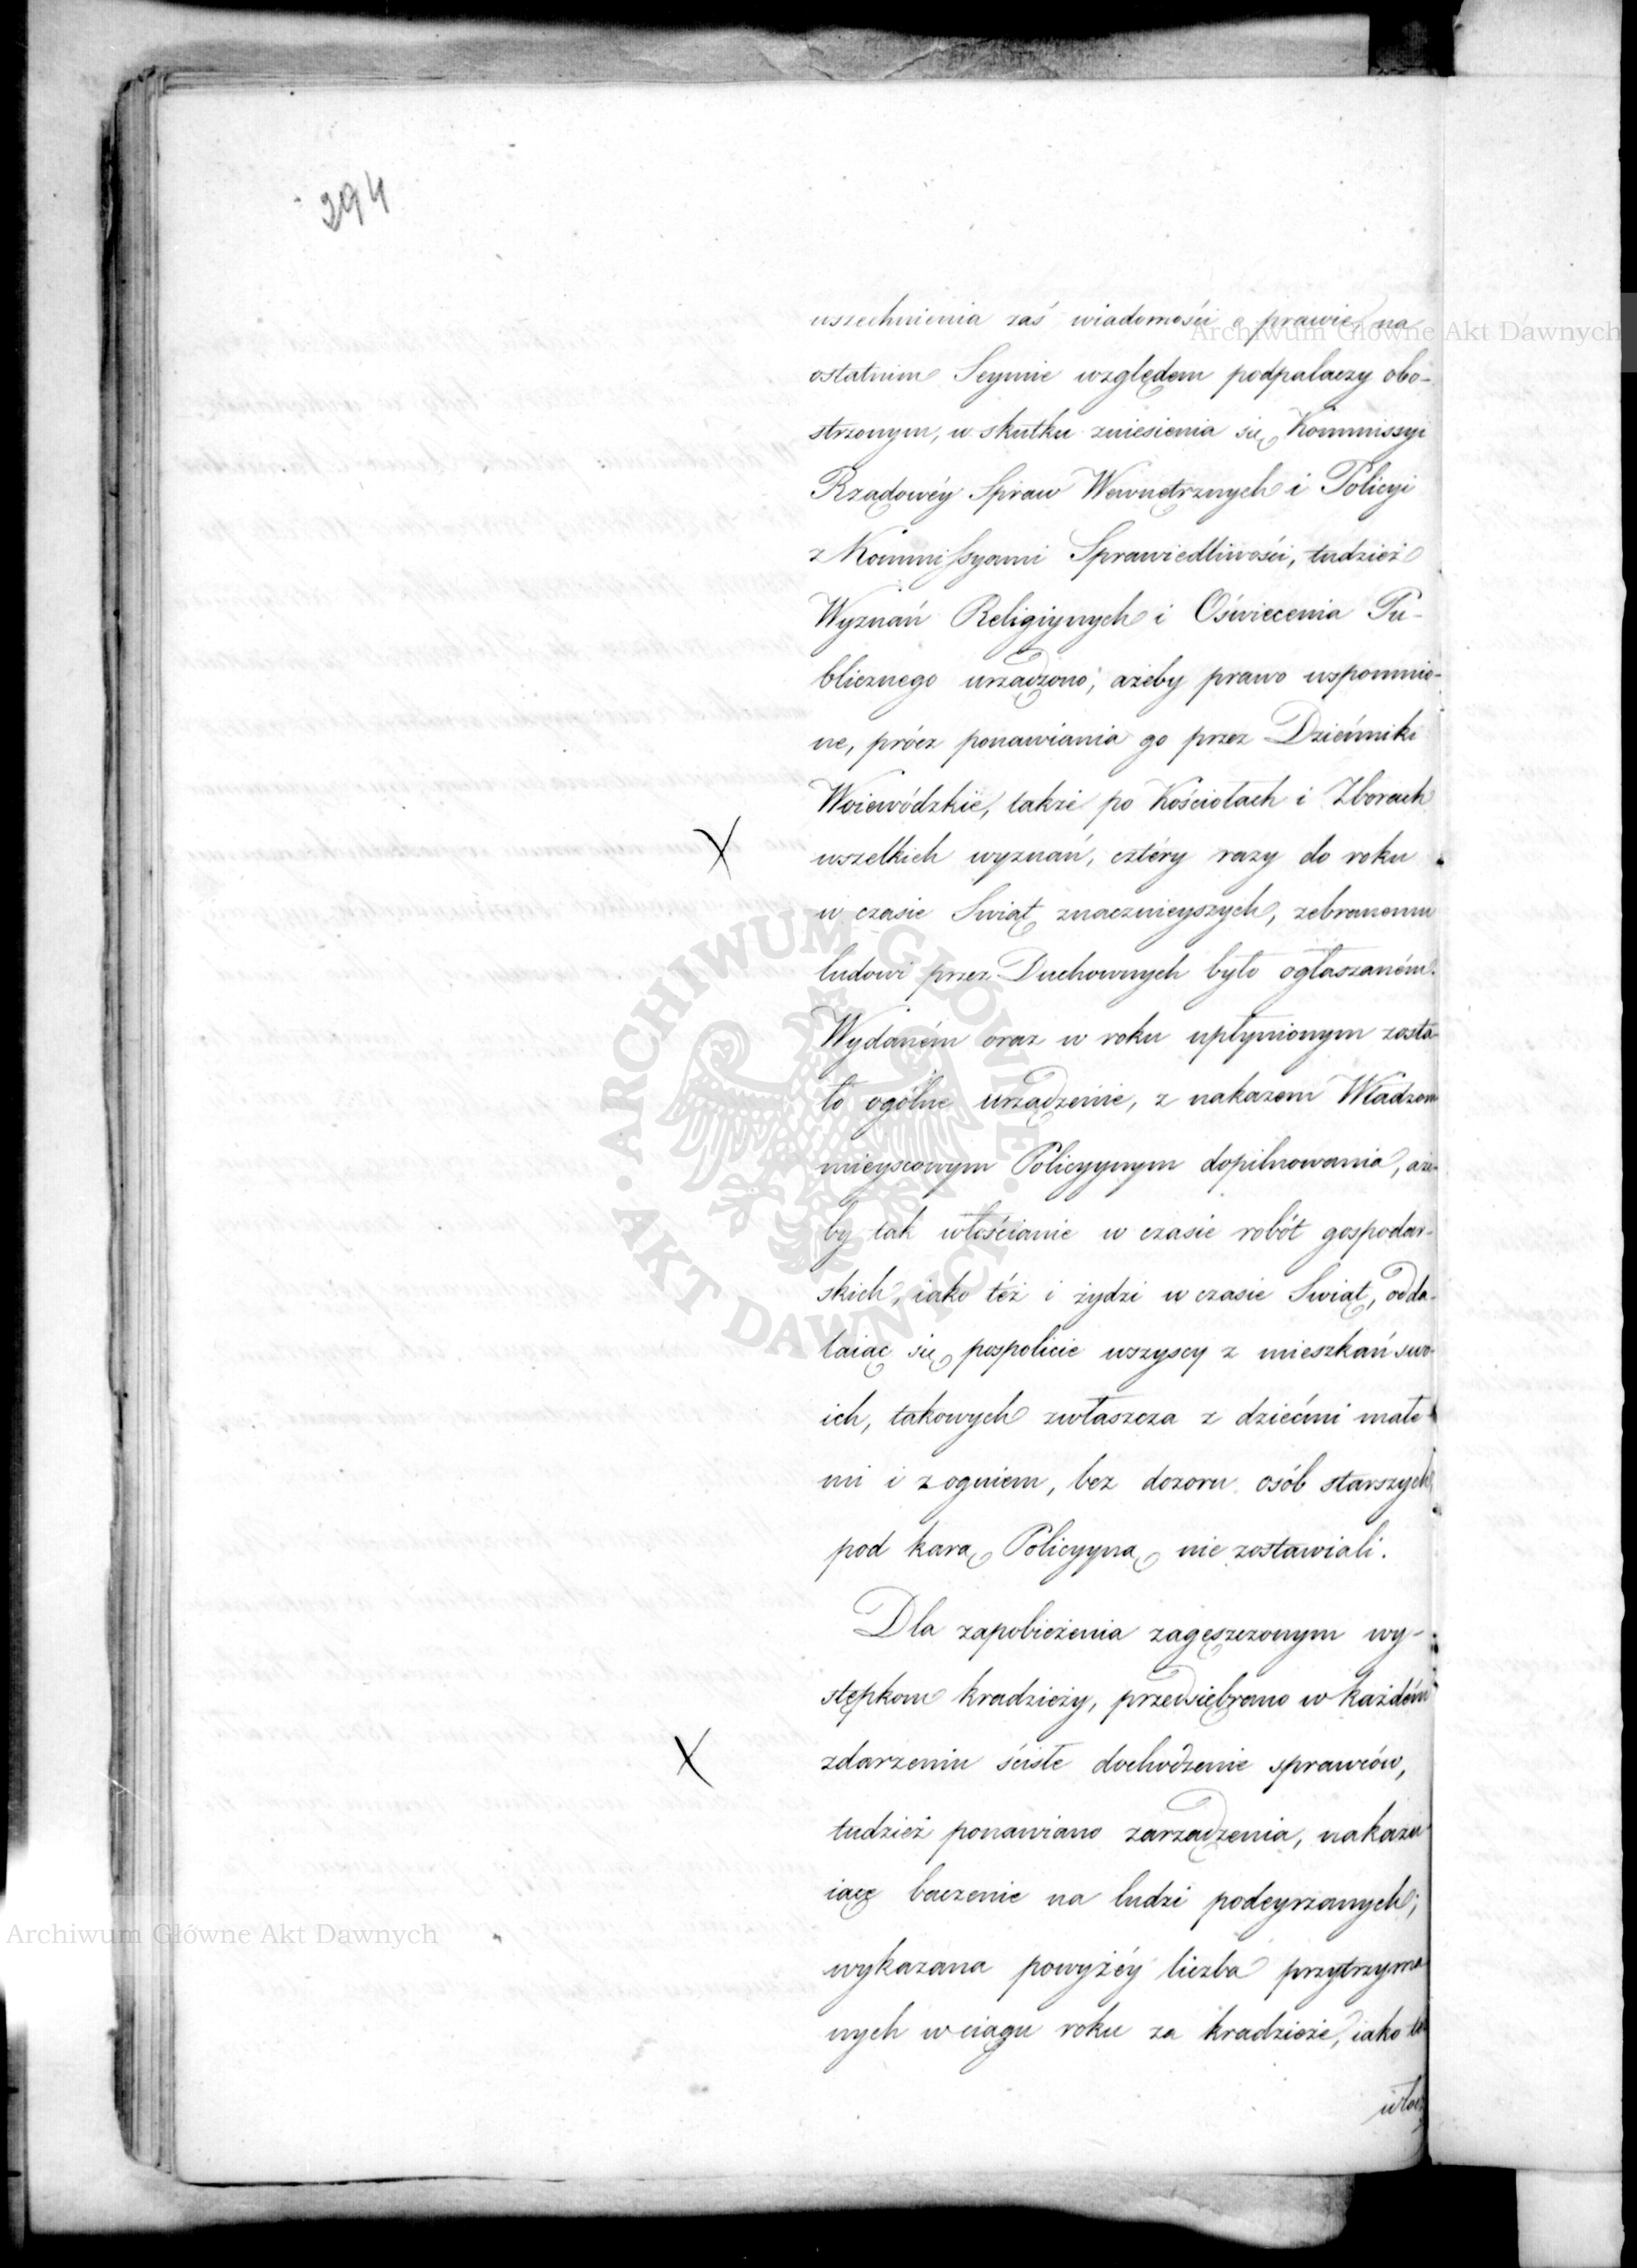 294
uszechnienia zaś wiadomości o prawie na
ostatnim Seymie względem podpalaczy obo-
strzonym, w skutku zniesienia się Kommissyi
Rządowéy Spraw Wewnętrznych i Policyi
z Kommissyami Sprawiedliwości, tudzież
Wyznań Religiynych i Oświecenia Pu-
blicznego urządzono, ażeby prawo wspomnio-
ne, prócz ponawiania go przez Dzienniki
Woiewódzkie, także po Kościołach i Zborach
wszelkich wyznań, cztéry razy do roku
w czasie Swiąt znacznieyszych, zebranemu
ludowi przez Duchownych było ogłaszaném.
Wydaném oraz w roku upłynionym zosta-
ło ogólne urządzenie, z nakazem Władzom
mieyscowym Policyynym dopilnowania, aże-
by tak włościanie w czasie robót gospodar-
skich, iako téż i żydzi w czasie Swiąt, odda-
laiąc się pospolicie wszyscy z mieszkań swo-
ich, takowych zwłaszcza z dziećmi małe-
mi i z ogniem, bez dozoru osób starszych
pod karą Policyyną nie zostawiali.
Dla zapobieżenia zagęszczonym wy-
stępkom kradzieży, przedsiębrano w każdém
zdarzeniu ścisłe dochodzenie sprawców,
tudzież ponawiano zarządzenia, nakazu
iące baczenie na ludzi podeyrzanych;
wykazana powyżéy liczba przytrzyma
nych w ciągu roku za kradzieże, iako to
włoś
Archiwum Główne Akt Dawnych
Archiwum Główne Akt Dawnych
ARCHIWUM GŁÓWNE AKT DAWNYCH